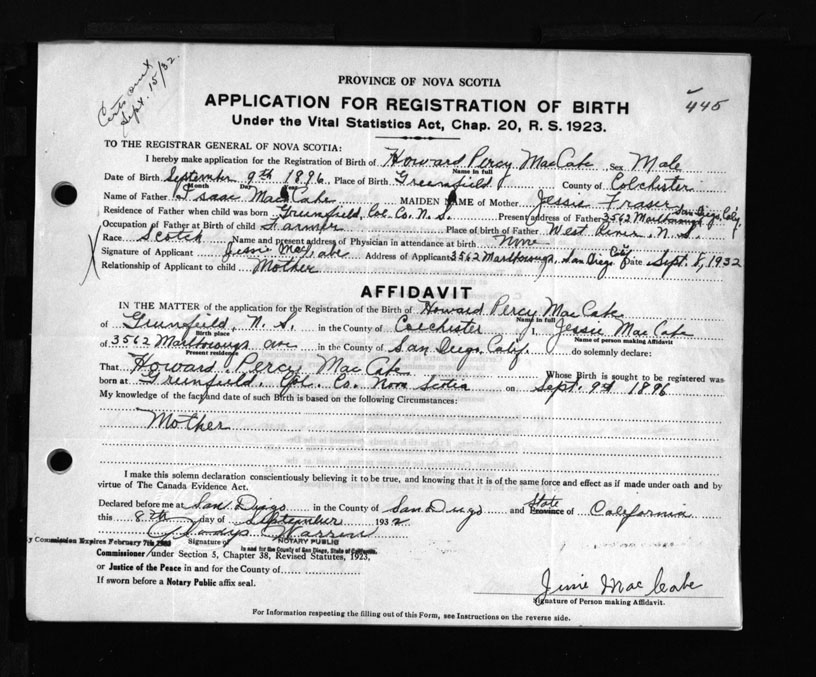 Cert. sent
Sept. 15/32.
445
PROVINCE OF NOVA SCOTIA
APPLICATION FOR REGISTRATION OF BIRTH
Under the Vital Statistics Act, Chap. 20, R. S. 1923.
TO THE REGISTRAR GENERAL OF NOVA SCOTIA:
I hereby make application for the Registration of Birth of Howard Percy MacCabe Sex Male
Name in full
Date of Birth September 9th 1896, Place of Birth Greenfield County of Colchester
Month Day Year
Name of Father Isaac MacCabe MAIDEN NAME of Mother Jessie Fraser
Residence of Father when child was born Greenfield, Col. Co. N. S. Present address of Father 3562 Marlborough San Diego, Calif.
Occupation of Father at Birth of child Farmer Place of birth of Father West River, N. S.
Race Scotch Name and present address of Physician in attendance at birth None
Signature of Applicant Jessie MacCabe Address of Applicant 3562 Marlborough, San Diego Calif Date Sept. 8, 1932
Relationship of Applicant to child Mother
AFFIDAVIT
IN THE MATTER of the application for the Registration of the Birth of Howard Percy MacCabe
Name in full
of Greenfield, N. S. in the County of Colchester I, Jessie MacCabe
Birth place Name of person making Affidavit
of 3562 Marlborough ave in the County of San Diego, Calif. do solemnly declare:
Present residence
That Howard Percy MacCabe Whose Birth is sought to be registered was
born at Greenfield, Col. Co. Nova Scotia on Sept. 9th 1896
My knowledge of the fact and date of such Birth is based on the following Circumstances:
Mother
I make this solemn declaration conscientiously believing it to be true, and knowing that it is of the same force and effect as if made under oath and by
virtue of The Canada Evidence Act.
Declared before me at San Diego in the County of San Diego and State Province of California
this 8th day of September 1932
Warren
y Commission Expires February 7th Signature of NOTARY PUBLIC
In and for the County of San Diego, State of California.
Commissioner under Section 5, Chapter 38, Revised Statutes, 1923,
or Justice of the Peace in and for the County of
If sworn before a Notary Public affix seal.
Jessie MacCabe
Signature of Person making Affidavit.
For Information respecting the filling out of this Form, see Instructions on the reverse side.